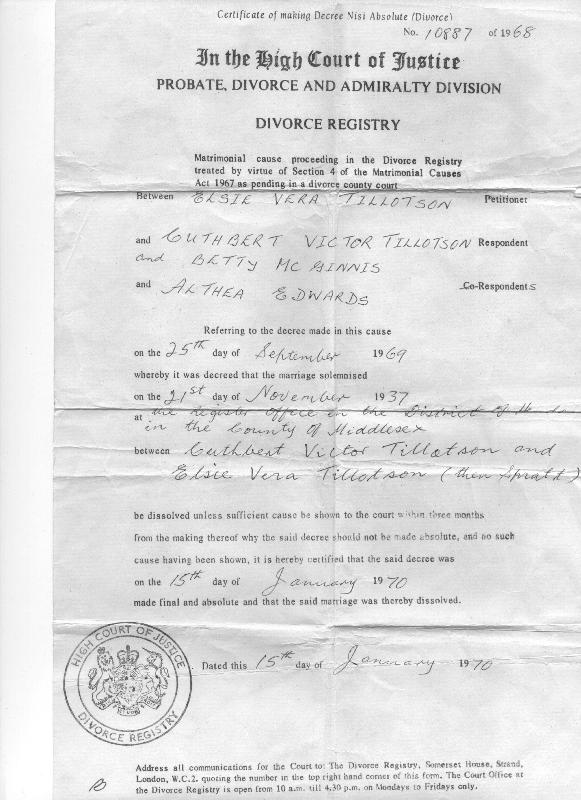 Certificate of making Decree Nisi Absolute (Divorce)
No. 10887 of 1968
In the High Court of Justice
PROBATE, DIVORCE AND ADMIRALTY DIVISION
DIVORCE REGISTRY
Matrimonial cause proceeding in the Divorce Registry
treated by virtue of Section 4 of the Matrimonial Causes
Act 1967 as pending in a divorce county court
Between ELSIE VERA TILLOTSON Petitioner
and CUTHBERT VICTOR TILLOTSON Respondent
and BETTY MCGINNIS
and ALTHEA EDWARDS Co-Respondents
Referring to the decree made in this cause
on the 25th day of September 1969
whereby it was decreed that the marriage solemnised
on the 21st day of November 1937
at the Register Office in the District of
in the County of Middlesex
between Cuthbert Victor Tillotson and
Elsie Vera Tillotson (then Spratt)
be dissolved unless sufficient cause be shown to the court within three months
from the making thereof why the said decree should not be made absolute, and no such
cause having been shown, it is hereby certified that the said decree was
on the 15th day of January 1970
made final and absolute and that the said marriage was thereby dissolved.
HIGH COURT OF JUSTICE
DIVORCE REGISTRY
Dated this 15th day of January 1970
Address all communications for the Court to: The Divorce Registry, Somerset House, Strand,
London, W.C.2. quoting the number in the top right hand corner of this form. The Court Office at
the Divorce Registry is open from 10 a.m. till 4.30 p.m. on Mondays to Fridays only.